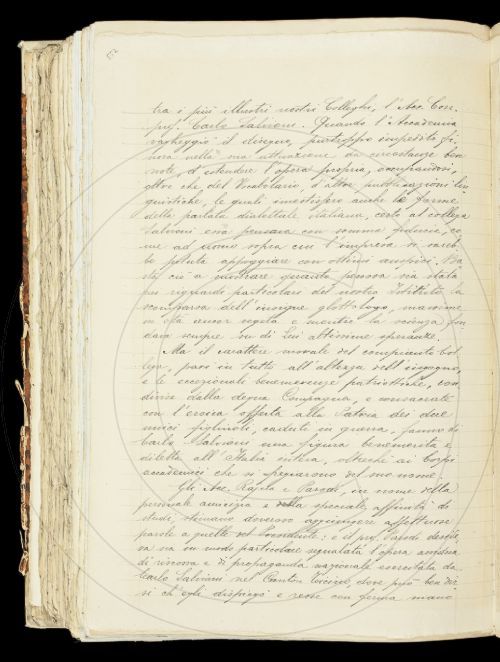 tra i più illustri nostri Colleghi, l'Acc. Corr.
prof. Carlo Salvioni. Quando l'Accademia
vagheggiò il disegno, purtroppo impedito fi-
nora nella sua attuazione da circostanze ben
note, d'estendere l'opera propria, occupandosi,
oltre che del Vocabolario, d'altre pubblicazioni lin
guistiche, le quali investissero anche le forme
della parlata dialettale italiana, certo al collega
Salvioni essa pensava con somma fiducia, co-
me ad uomo sopra cui l'impresa si sareb-
be potuta appoggiare con ottimi auspici. Ba
sta ciò a mostrare quanto penosa sia stata
pei riguardi particolari del nostro Istituto la
scomparsa dell'insigne glottologo, massime
in età ancor vegeta e mentre la scienza fon
dava sempre su di Lui altissime speranze.
Ma il carattere morale del compianto col-
lega, pari in tutto all'altezza dell'ingegno,
e le eccezionali benemerenze patriottiche, con
divise dalla degna Compagna, e consacrate
con l'eroica offerta alla Patria dei due
unici figliuoli, caduti in guerra, fanno di
Carlo Salvioni una figura benemerita e
diletta all'Italia intera, oltrechè ai Corpi
accademici che si pregiarono del suo nome.
Gli Acc. Rajna e Parodi, in nome della
personale amicizia e della speciale affinità di
studi, stimano doveroso aggiungere affettuose
parole a quelle del Presidente: e il prof. Parodi deside
ra sia in modo particolare segnalata l'opera assidua
di riscossa e di propaganda nazionale esercitata da
Carlo Salvioni nel Canton Ticino, dove può ben dir
si ch'egli dispiegò e resse con ferma mano